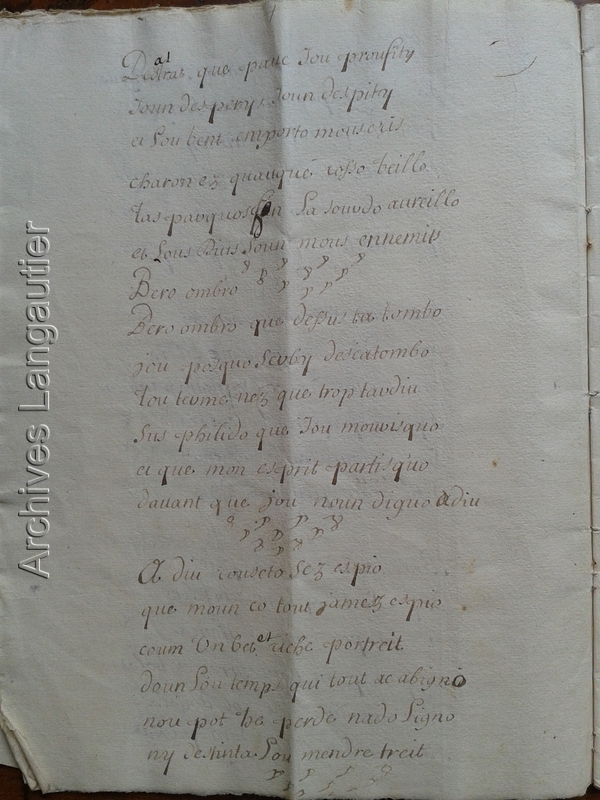 Destras que pauc Iou proufity
Ioun desperys Ioun despity
et Lou bent emporto mous cris
charon ez quauque rosso beillo
Las parquos fon La sourdo aureillo
et Lous Dius Soun mous ennemis
Bero ombro
Bero ombro que dessus ta tombo
jou posquo Serby descatombo
Lou terme nez que trop tardiu
Sus philido que Iou mourisquo
et que mon esprit partisquo
dauant que jou noun diguo adiu
A diu couseto Sez espio
que moun co tout jamez espio
coum Un bet et riche portreit
doun Lou temps qui tout ac abigno
nou pot ha perde nado Signo
ny destinta Lou mendre treit
Archives Langautier